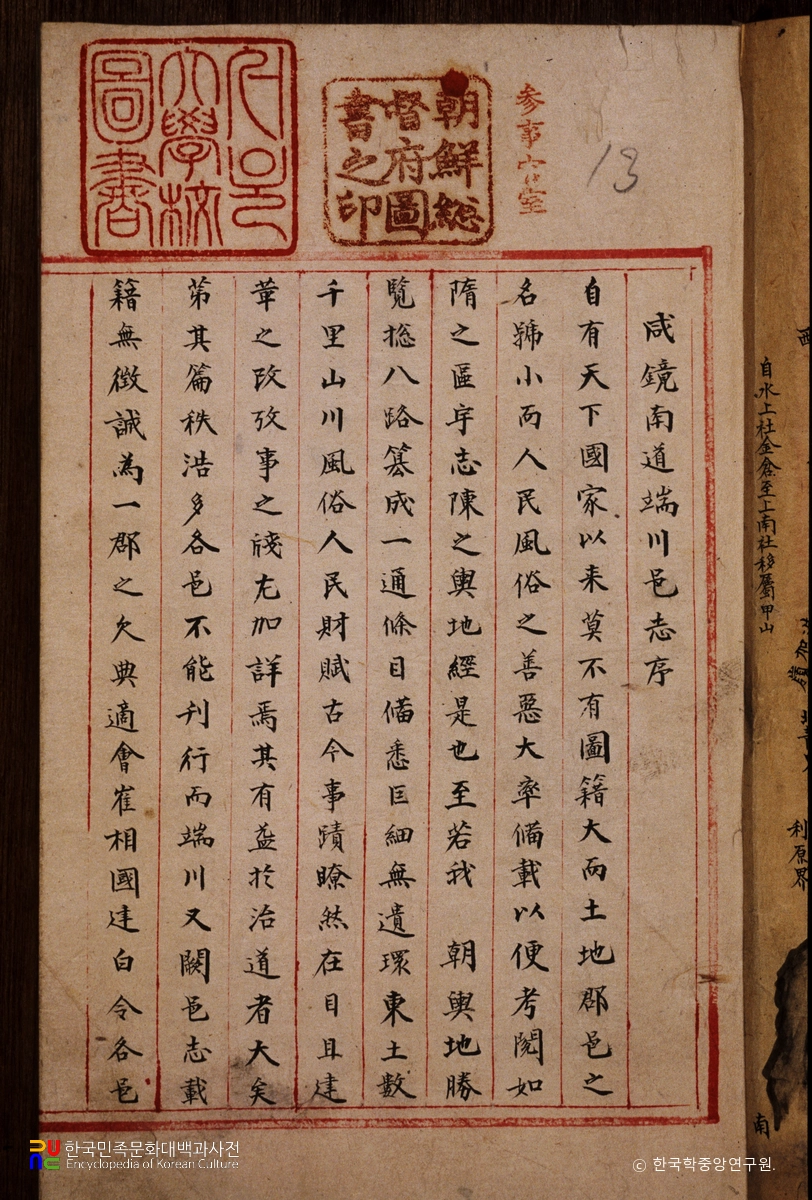 咸鏡南道端川邑志序
自有天下國家以来莫不有圖籍大而土地郡邑之
名號小而人民風俗之善惡大率備載以便考閱如
隋之區宇志陳之輿地經是也至若我 朝輿地勝
覽揔八路纂成一通條目備悉巨細無遺環東土數
千里山川風俗人民財賦古今事蹟瞭然在目且建
革之政攷事之牋尤加詳焉其有益於治道者大矣
第其篇秩浩多各邑不能刊行而端川又闕邑志載
籍無徵誠為一郡之欠典適會崔相國建白令各邑
朝鮮総
督府圖
書之印
大學校
圖書
参事官室
13
自水上社金倉至上南社移屬甲山
利原界
南
한국민족문화대백과사전
Encyclopedia of Korean Culture
ⓒ 한국학중앙연구원.